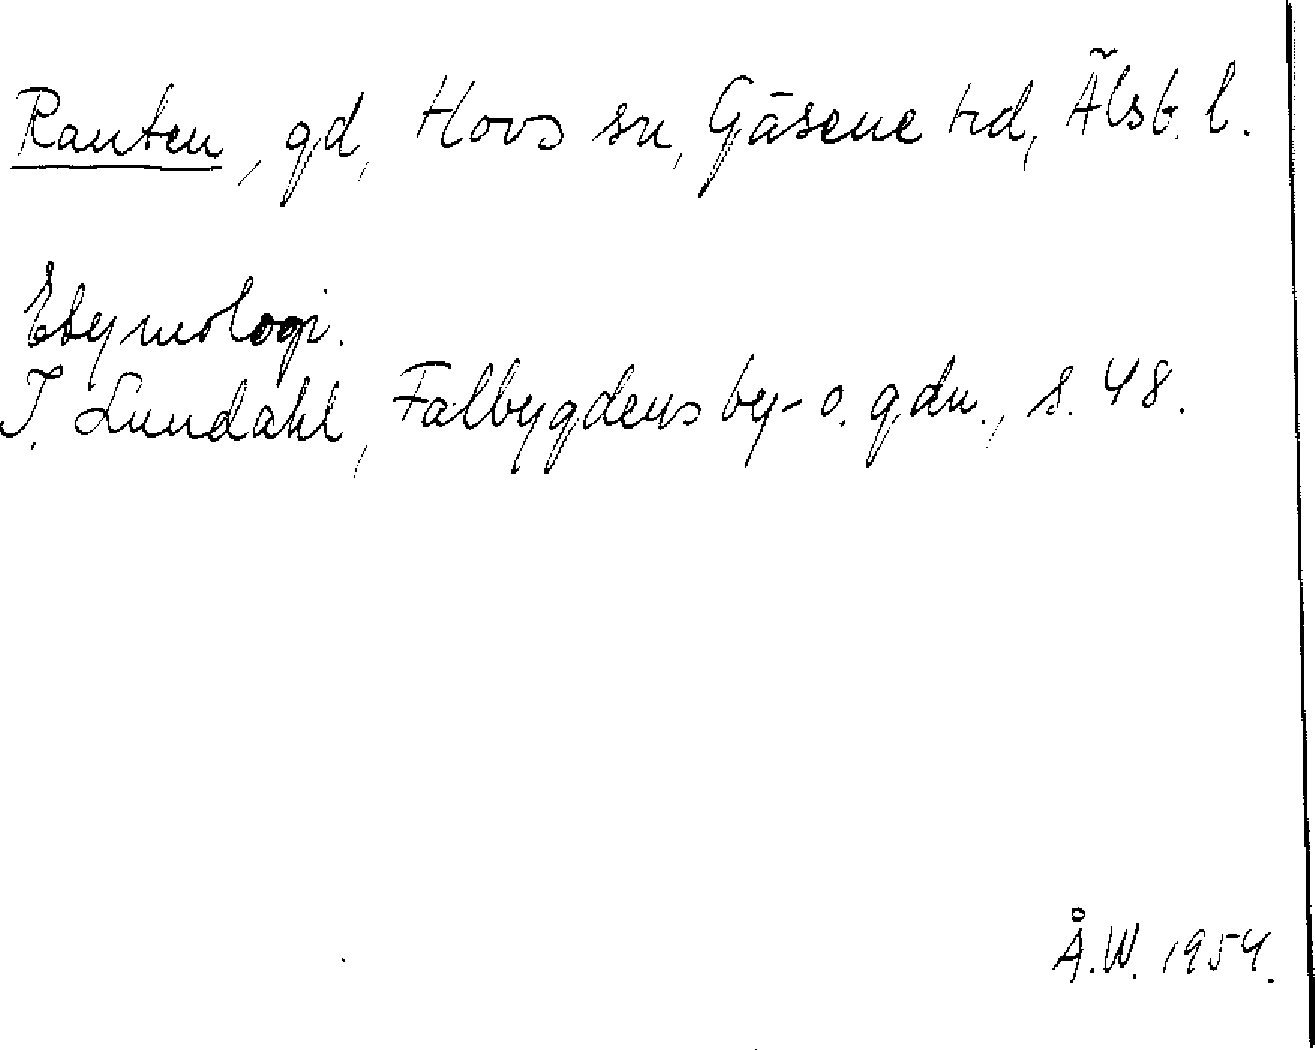 Ranten, gd, Hovs sn, Gäsene hd, Älsb. l.
Etymologi.
I. Lundahl, Falbygdens by- o. gdn., s. 48.
Å.W. 1954.